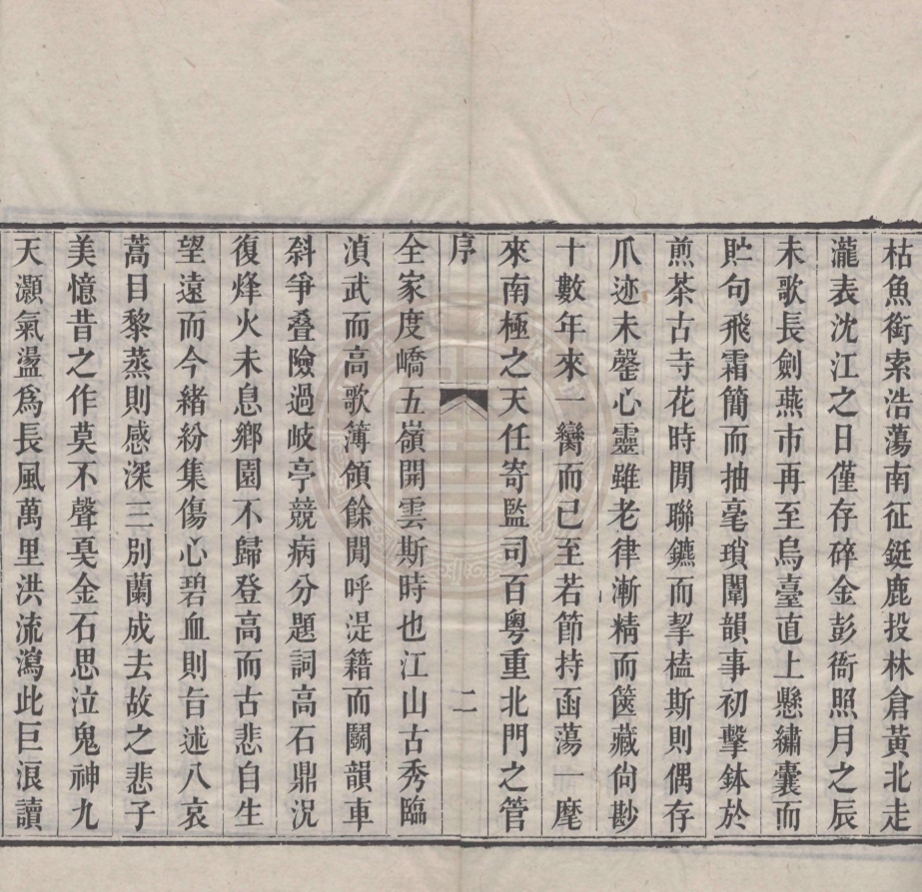 枯魚銜索浩蕩南征鋌鹿投林倉黃北走
瀧表沈江之日僅存碎金彭衙照月之辰
未歌長劍燕市再至烏臺直上懸繡囊而
貯句飛霜簡而抽毫瑣闈韻事初擊鉢於
煎茶古寺花時閒聯鑣而挈榼斯則偶存
爪迹未罄心靈雖老律漸精而篋藏尙尠
十數年來一臠而已至若節持函蕩一麾
來南極之天任寄監司百粵重北門之管
序
二
全家度嶠五嶺開雲斯時也江山古秀臨
湞武而高歌簿領餘閒呼湜籍而鬭韻車
斜爭疊險過岐亭競病分題詞高石鼎況
復烽火未息鄉園不歸登高而古悲自生
望遠而今緒紛集傷心碧血則旨述八哀
蒿目黎蒸則感深三別蘭成去故之悲子
美憶昔之作莫不聲戛金石思泣鬼神九
天灝氣盪爲長風萬里洪流瀉此巨浪讀